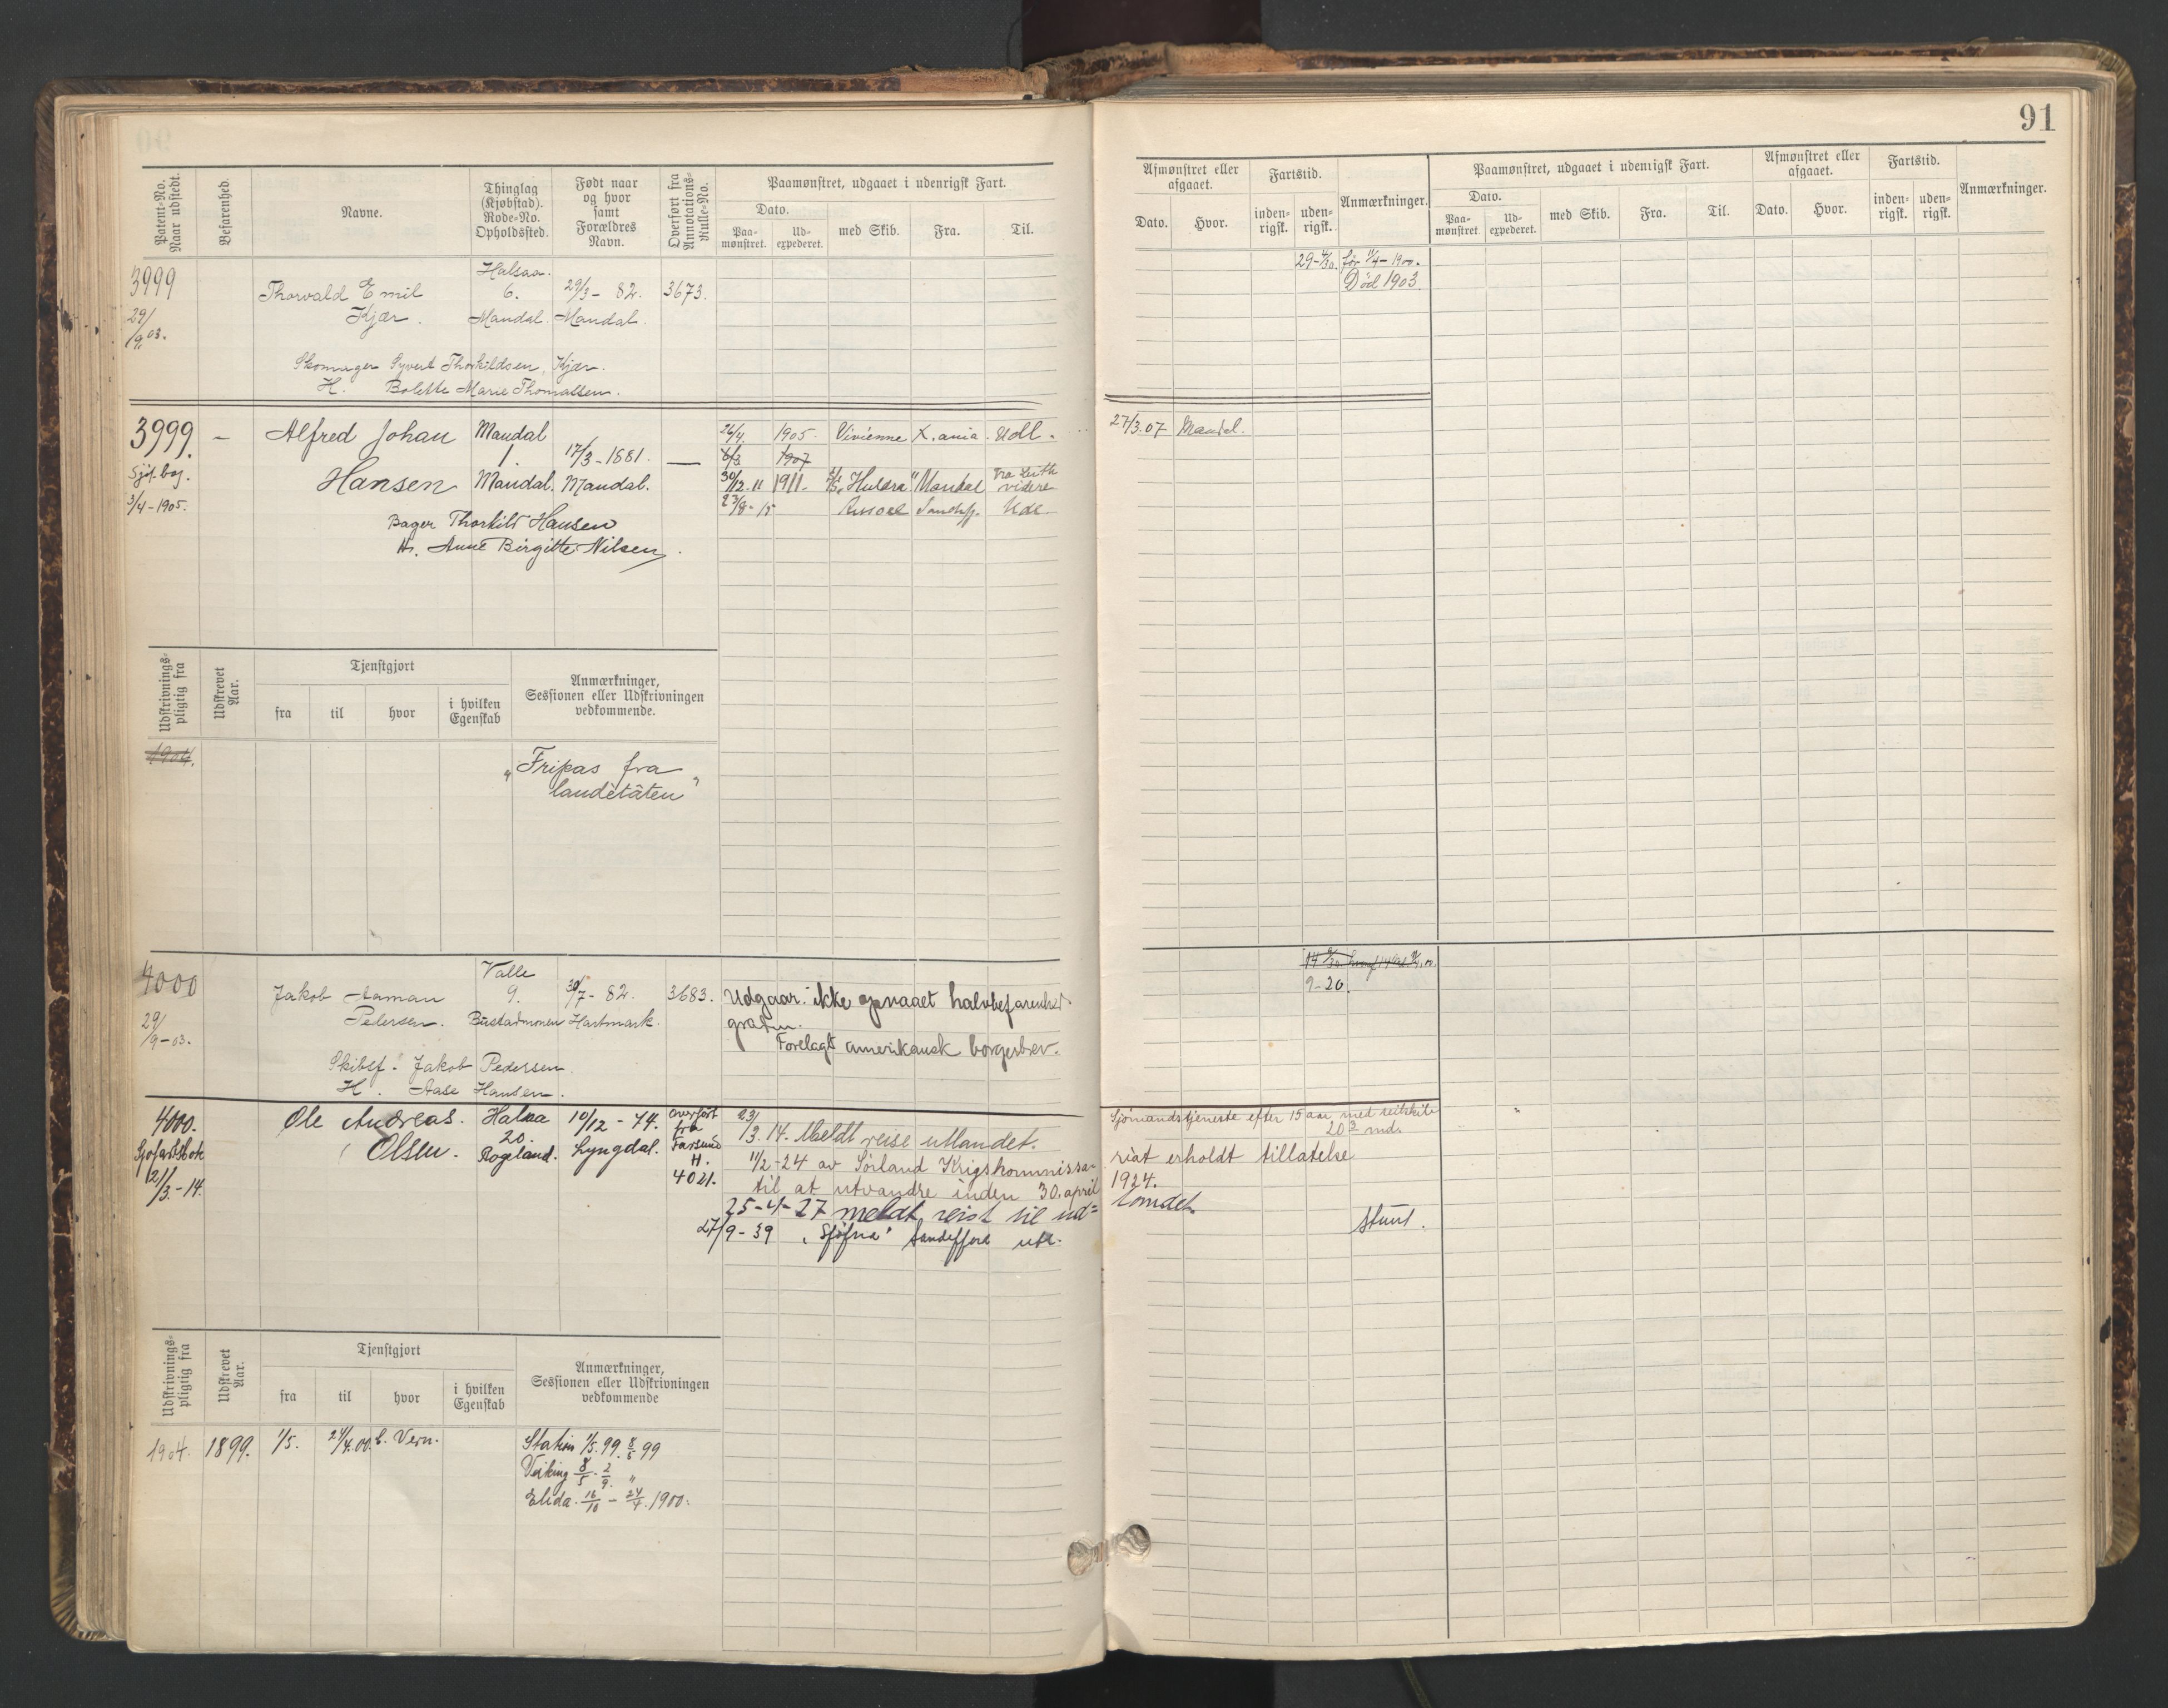 91
Patent-No. Naar udstedt.
Befarenhed.
Navne.
Thinglag (Kjøbstad). Rode-No. Opholdssted.
Født naar og hvor samt Forældres Navn.
Overført fra Annotations-Rulle-No.
Paamønstret, udgaaet i udenrigsk Fart.
Dato.
Paa-mønstret.
Ud-expederet.
med Skib.
Fra.
Til.
Afmønstret eller afgaaet.
Dato.
Hvor.
Fartstid.
inden-rigsk.
uden-rigsk.
Anmærkninger.
Paamønstret, udgaaet i udenrigsk Fart.
Dato.
Paa-mønstret.
Ud-expederet.
med Skib.
Fra.
Til.
Afmønstret eller afgaaet.
Dato.
Hvor.
Fartstid.
inden-rigsk.
uden-rigsk.
Anmærkninger.
3999
29/9 03.
Thorvald Emil
Kjær.
Halsaa.
6.
Mandal
29/3 - 82.
Mandal.
3673.
Skomager Syvert Thorkildsen Kjær.
H. Bolette Marie Thomassen.
før 11/4-1900.
Død 1903.
3999.
Sjøf. bog.
3/4-1905.
Alfred Johan
Hansen
Mandal
1
Mandal.
17/3-1881.
Mandal.
Bager Thorkild Hansen
H. Anne Birgitte Nilsen
26/4. 1905. Vivienne X.ania. Udl.
1907
30/12.11 1911. "Huldra" Mandal
videre
23/8-15
Udl.
27/3.07 Mandal.
Udskrivnings-pligtig fra
Udskrevet Aar.
Tjenstgjort
fra
til
hvor
i hvilken Egenskab
Anmærkninger, Sessionen eller Udskrivningen vedkommende.
1904.
"Fripas fra
landetaten"
4000
29/9-03.
Jakob Aaman
Petersen.
Valle
9.
Bustadmonen
30/7-82.
Hartmark.
3683.
Skibsf. Jakob Pedersen
H. Aase Hansen.
Udgaar. ikke opnaaet halvbefarenhed
graden.
Forelagt amerikansk borgerbrev.
9-20.
4000.
Sjøfartsbok
21/3.-14.
Ole Andreas.
Olsen.
Halsaa
20.
Rogeland.
10/12-74.
Lyngdal.
overført
fra
Farsund
H.
4021.
23/3.14. Meldt reise utlandet.
11/2-24 av Sørland Krigskommissa-
riat erholdt tillatelse
til at utvandre inden 30. april
1924.
25-4-27 meldt reist til ud=
landet.
27/9-39 Sandefjord utl.
Sjømandstjeneste efter 15 aar med seilskib
20 2 md.
Udskrivnings-pligtig fra
Udskrevet Aar.
Tjenstgjort
fra
til
hvor
i hvilken Egenskab
Anmærkninger, Sessionen eller Udskrivningen vedkommende
1904. 1899. 1/5. 24/4.00. t. Vern.
Station 1/5.99. 8/5 99
Veiking 8/5. 2/9. "
Elida. 16/10 - 24/4.1900.